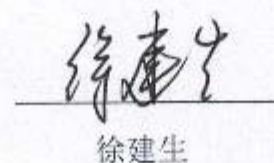 徐建生
徐建生